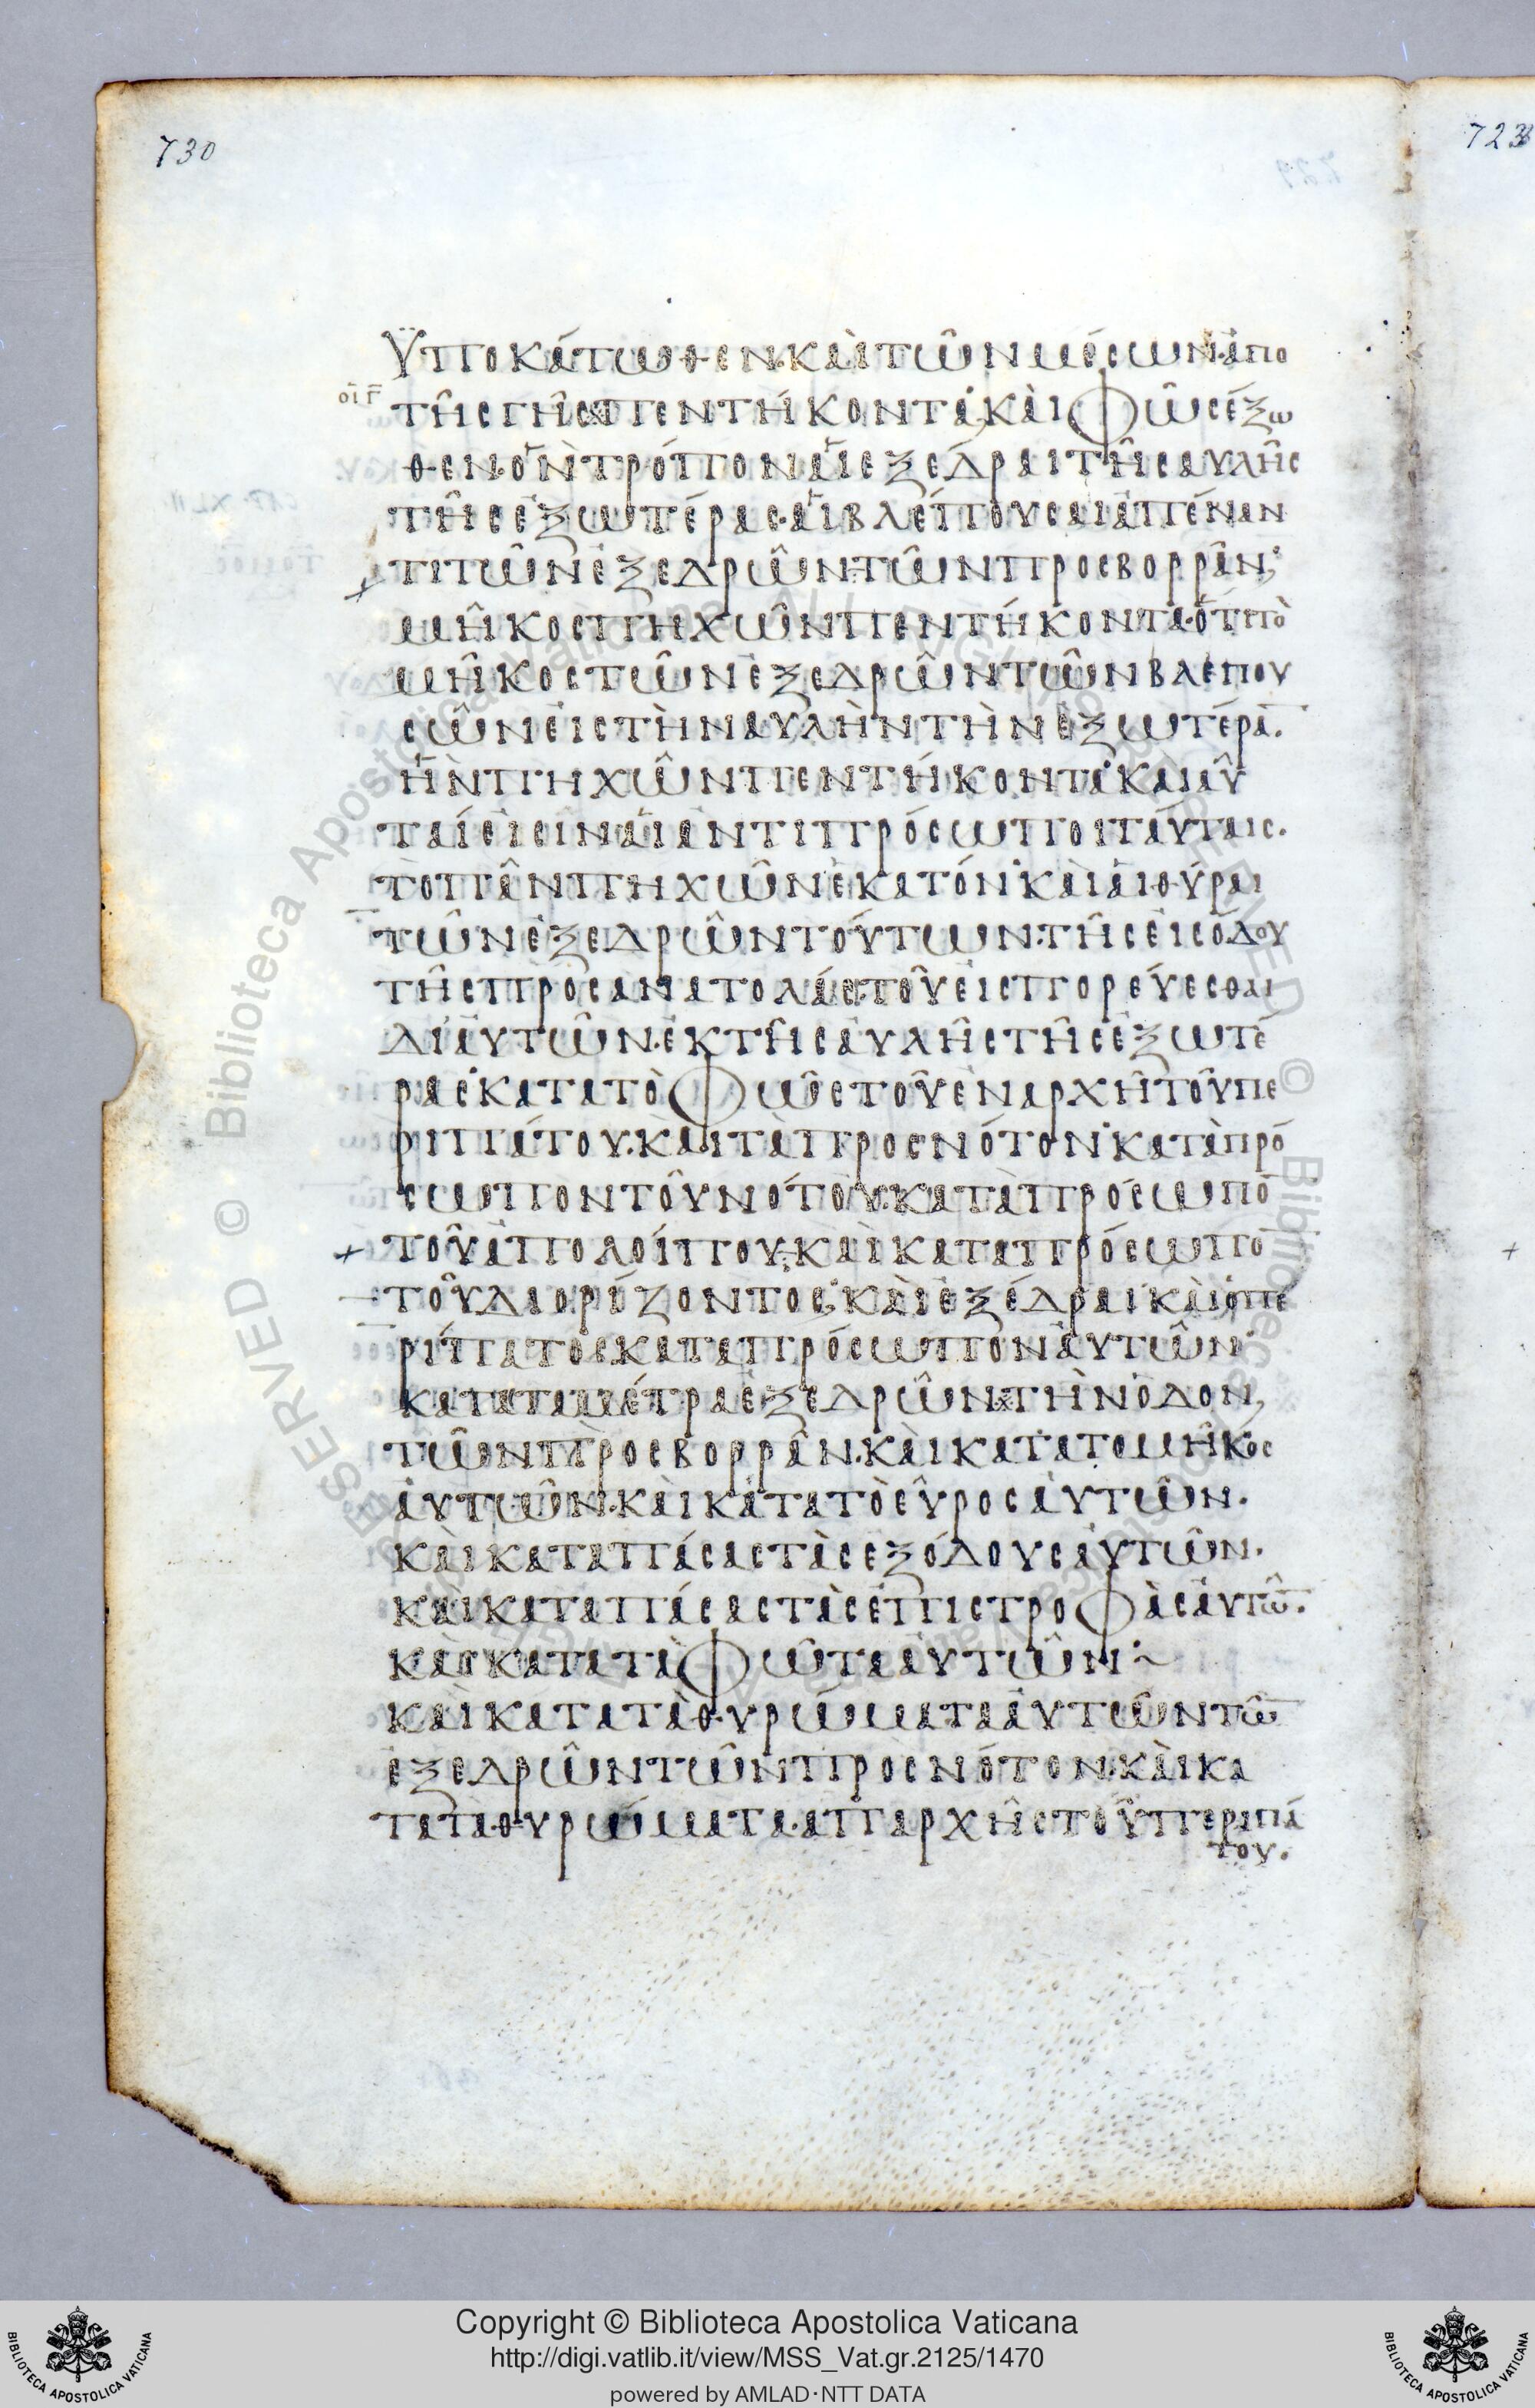 730
723
ὙΠΟΚΆΤΩΘΕΝ·ΚΑῚΤΩ͂ΝΜΈΣΩΝ·ἈΠΟ
οἱ Γ̅
ΤΗ͂ΣΓΗ͂Σ※ΠΕΝΤΉΚΟΝΤΑ·ΚΑῚΦΩ͂ΣἜΞΩ
ΘΕΝ·ὋΝΤΡΌΠΟΝΑἹΕΞΈΔΡΑΙΤΗ͂ΣΑΥΛΗ͂Σ
ΤΗ͂ΣἘΞΩΤΈΡΑΣ·ΑἹΒΛΈΠΟΥΣΑΙἈΠΈΝΑΝ
ΤΙΤΩ͂ΝἘΞΕΔΡΩ͂ΝΤΩ͂ΝΠΡΟΣΒΟΡΡΑ͂Ν·
ΜΗ͂ΚΟΣΠΗΧΩ͂ΝΠΕΝΤΉΚΟΝΤΑ·ὍΤΙΤῸ
ΜΗ͂ΚΟΣΤΩ͂ΝἘΞΕΔΡΩ͂ΝΤΩ͂ΝΒΛΕΠΟΥ
ΣΩ͂ΝΕἸΣΤῊΝΑΥΛῊΝΤῊΝἘΞΩΤΈΡΑ̅·
ἯΝΠΗΧΩ͂ΝΠΕΝΤΉΚΟΝΤΑ·ΚΑΙΑΥ͂
ΤΑΊΕἸΣΙΝΑἹἈΝΤΙΠΡΌΣΩΠΟΙΤΑΎΤΑΙΣ·
ΤῸΠΑ͂ΝΠΗΧΩ͂ΝἙΚΑΤΌΝ·ΚΑῚΑἹΘΎΡΑΙ
ΤΩ͂ΝἘΞΕΔΡΩ͂ΝΤΟΎΤΩΝ·ΤΗ͂ΣΕἸΣΌΔΟΥ
ΤΗ͂ΣΠΡΟΣΑΝΑΤΟΛΆΣ·ΤΟΥ͂ΕἸΣΠΟΡΕΎΕΣΘΑΙ
ΔΙ᾽ἈΥΤΩ͂Ν·ἘΚΤΗ͂ΣΑΥΛΗ͂ΣΤΗ͂ΣἘΞΩΤΈ
ΡΑΣ·ΚΑΤΑΤῸΦΩ͂ΣΤΟΥ͂ἘΝΑΡΧΗ͂ΤΟΥ͂ΠΕ
ΡΙΠΆΤΟΥ·ΚΑῚΤᾺΠΡΟΣΝΌΤΟΝ·ΚΑΤᾺΠΡΌ
ΣΩΠΟΝΤΟΥ͂ΝΌΤΟΥ·ΚΑΤᾺΠΡΌΣΩΠΟ̅
ΤΟΥ͂ἈΠΟΛΟΊΠΟΥ·ΚΑῚΚΑΤΑΠΡΌΣΩΠΟ̅
ΤΟΥ͂ΔΙΟΡΊΖΟΝΤΟΣ·ΚΑῚἘΞΈΔΡΑΙΚΑῚὉΠΕ
ΡΊΠΑΤΟΣΚΑΤΑΠΡΌΣΩΠΟΝἈΥΤΩ͂Ν·
ΚΑΤΑΤΑΜΈΤΡΑἘΞΕΔΡΩ͂Ν※ΤῊΝὉΔΟΝ,
ΤΩ͂ΝΠΡΟΣΒΟΡΡΑ͂Ν·ΚΑῚΚΑΤΑΤΟΜΗ͂ΚΟΣ
ἈΥΤΩ͂Ν·ΚΑῚΚΑΤΑΤῸΕΥ͂ΡΟΣἈΥΤΩ͂Ν·
ΚΑῚΚΑΤΑΠΆΣΑΣΤᾺΣΕΞΌΔΟΥΣἈΥΤΩ͂Ν·
ΚΑῚΚΑΤΑΠΆΣΑΣΤᾺΣἘΠΙΣΤΡΟΦᾺΣἈΥΤΩ̅͂·
ΚΑῚΚΑΤΑΤᾺΦΩ͂ΤΑἈΥΤΩ͂Ν·~
ΚΑῚΚΑΤΑΤᾺΘΥΡΏΜΑΤΑἈΥΤΩ͂ΝΤΩ̅͂
ἘΞΕΔΡΩ͂ΝΤΩ͂ΝΠΡῸΣΝΌΤΟΝ·ΚΑῚΚΑ
ΤΑΤᾺΘΥΡΏΜΑΤΑ·ΑΠΑΡΧΗ͂ΣΤΟΥ͂ΠΕΡΙΠΆ
ΤΟΥ·
Copyright © Biblioteca Apostolica Vaticana
http://digi.vatlib.it/view/MSS_Vat.gr.2125/1470
powered by AMLAD·NTT DATA
BIBLIOTECA APOSTOLICA VATICANA
BIBLIOTECA APOSTOLICA VATICANA